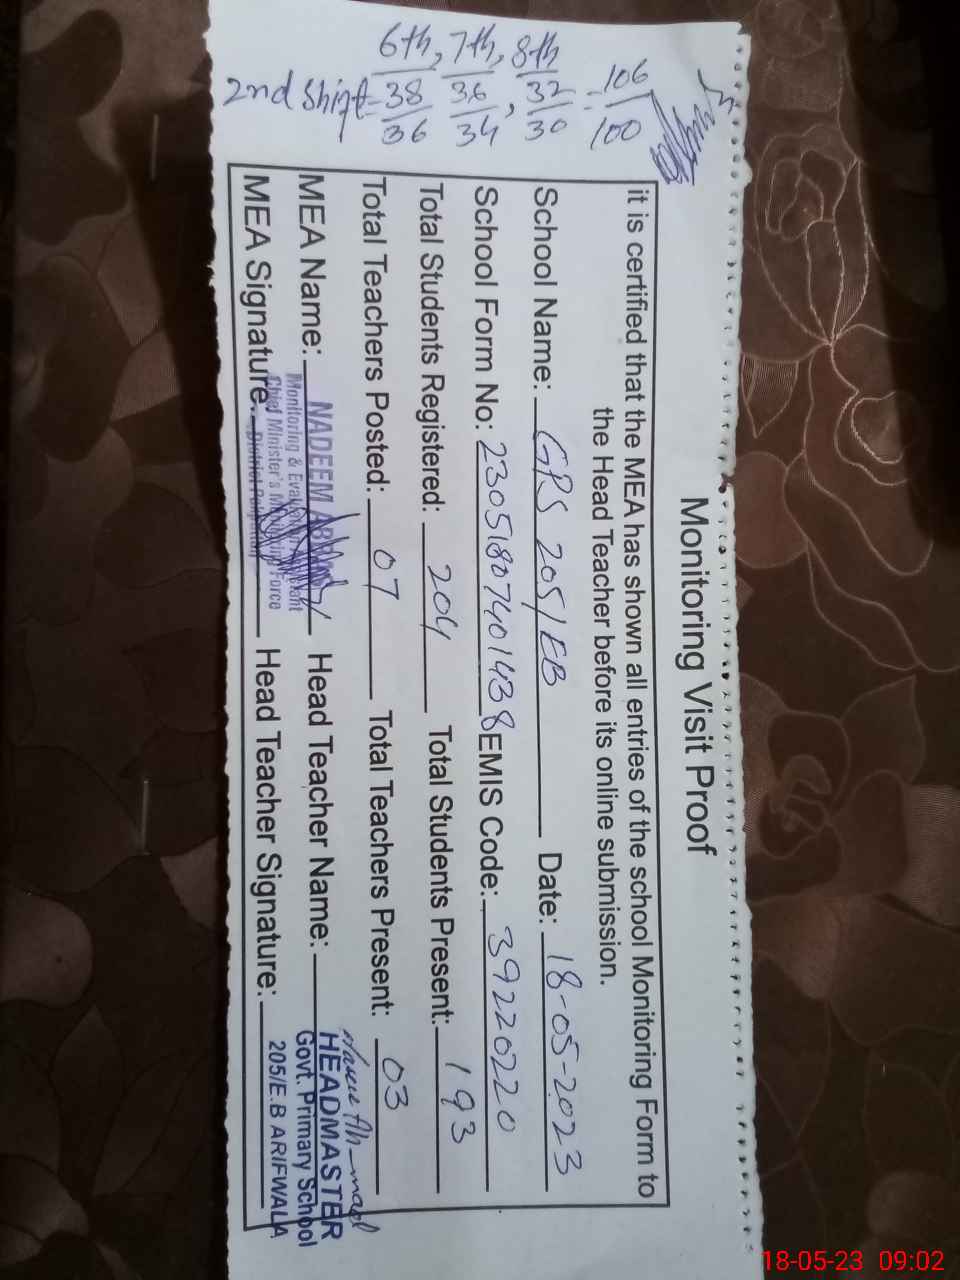 6th, 7th, 8th
2nd Shift = 38/36 36/34, 32/30 = 106/100
Monitoring Visit Proof
it is certified that the MEA has shown all entries of the school Monitoring Form to
the Head Teacher before its online submission.
School Name: GPS 205/EB Date: 18-05-2023
School Form No: 23051807401438 EMIS Code: 39220220
Total Students Registered: 204 Total Students Present: 193
Total Teachers Posted: 07 Total Teachers Present: 03
MEA Name: NADEEM Head Teacher Name:
Monitoring & Evaluation
Chief Minister's Monitoring Force
MEA Signature: Head Teacher Signature:
HEADMASTER
Govt. Primary School
205/E.B ARIFWALA
18-05-23 09:02